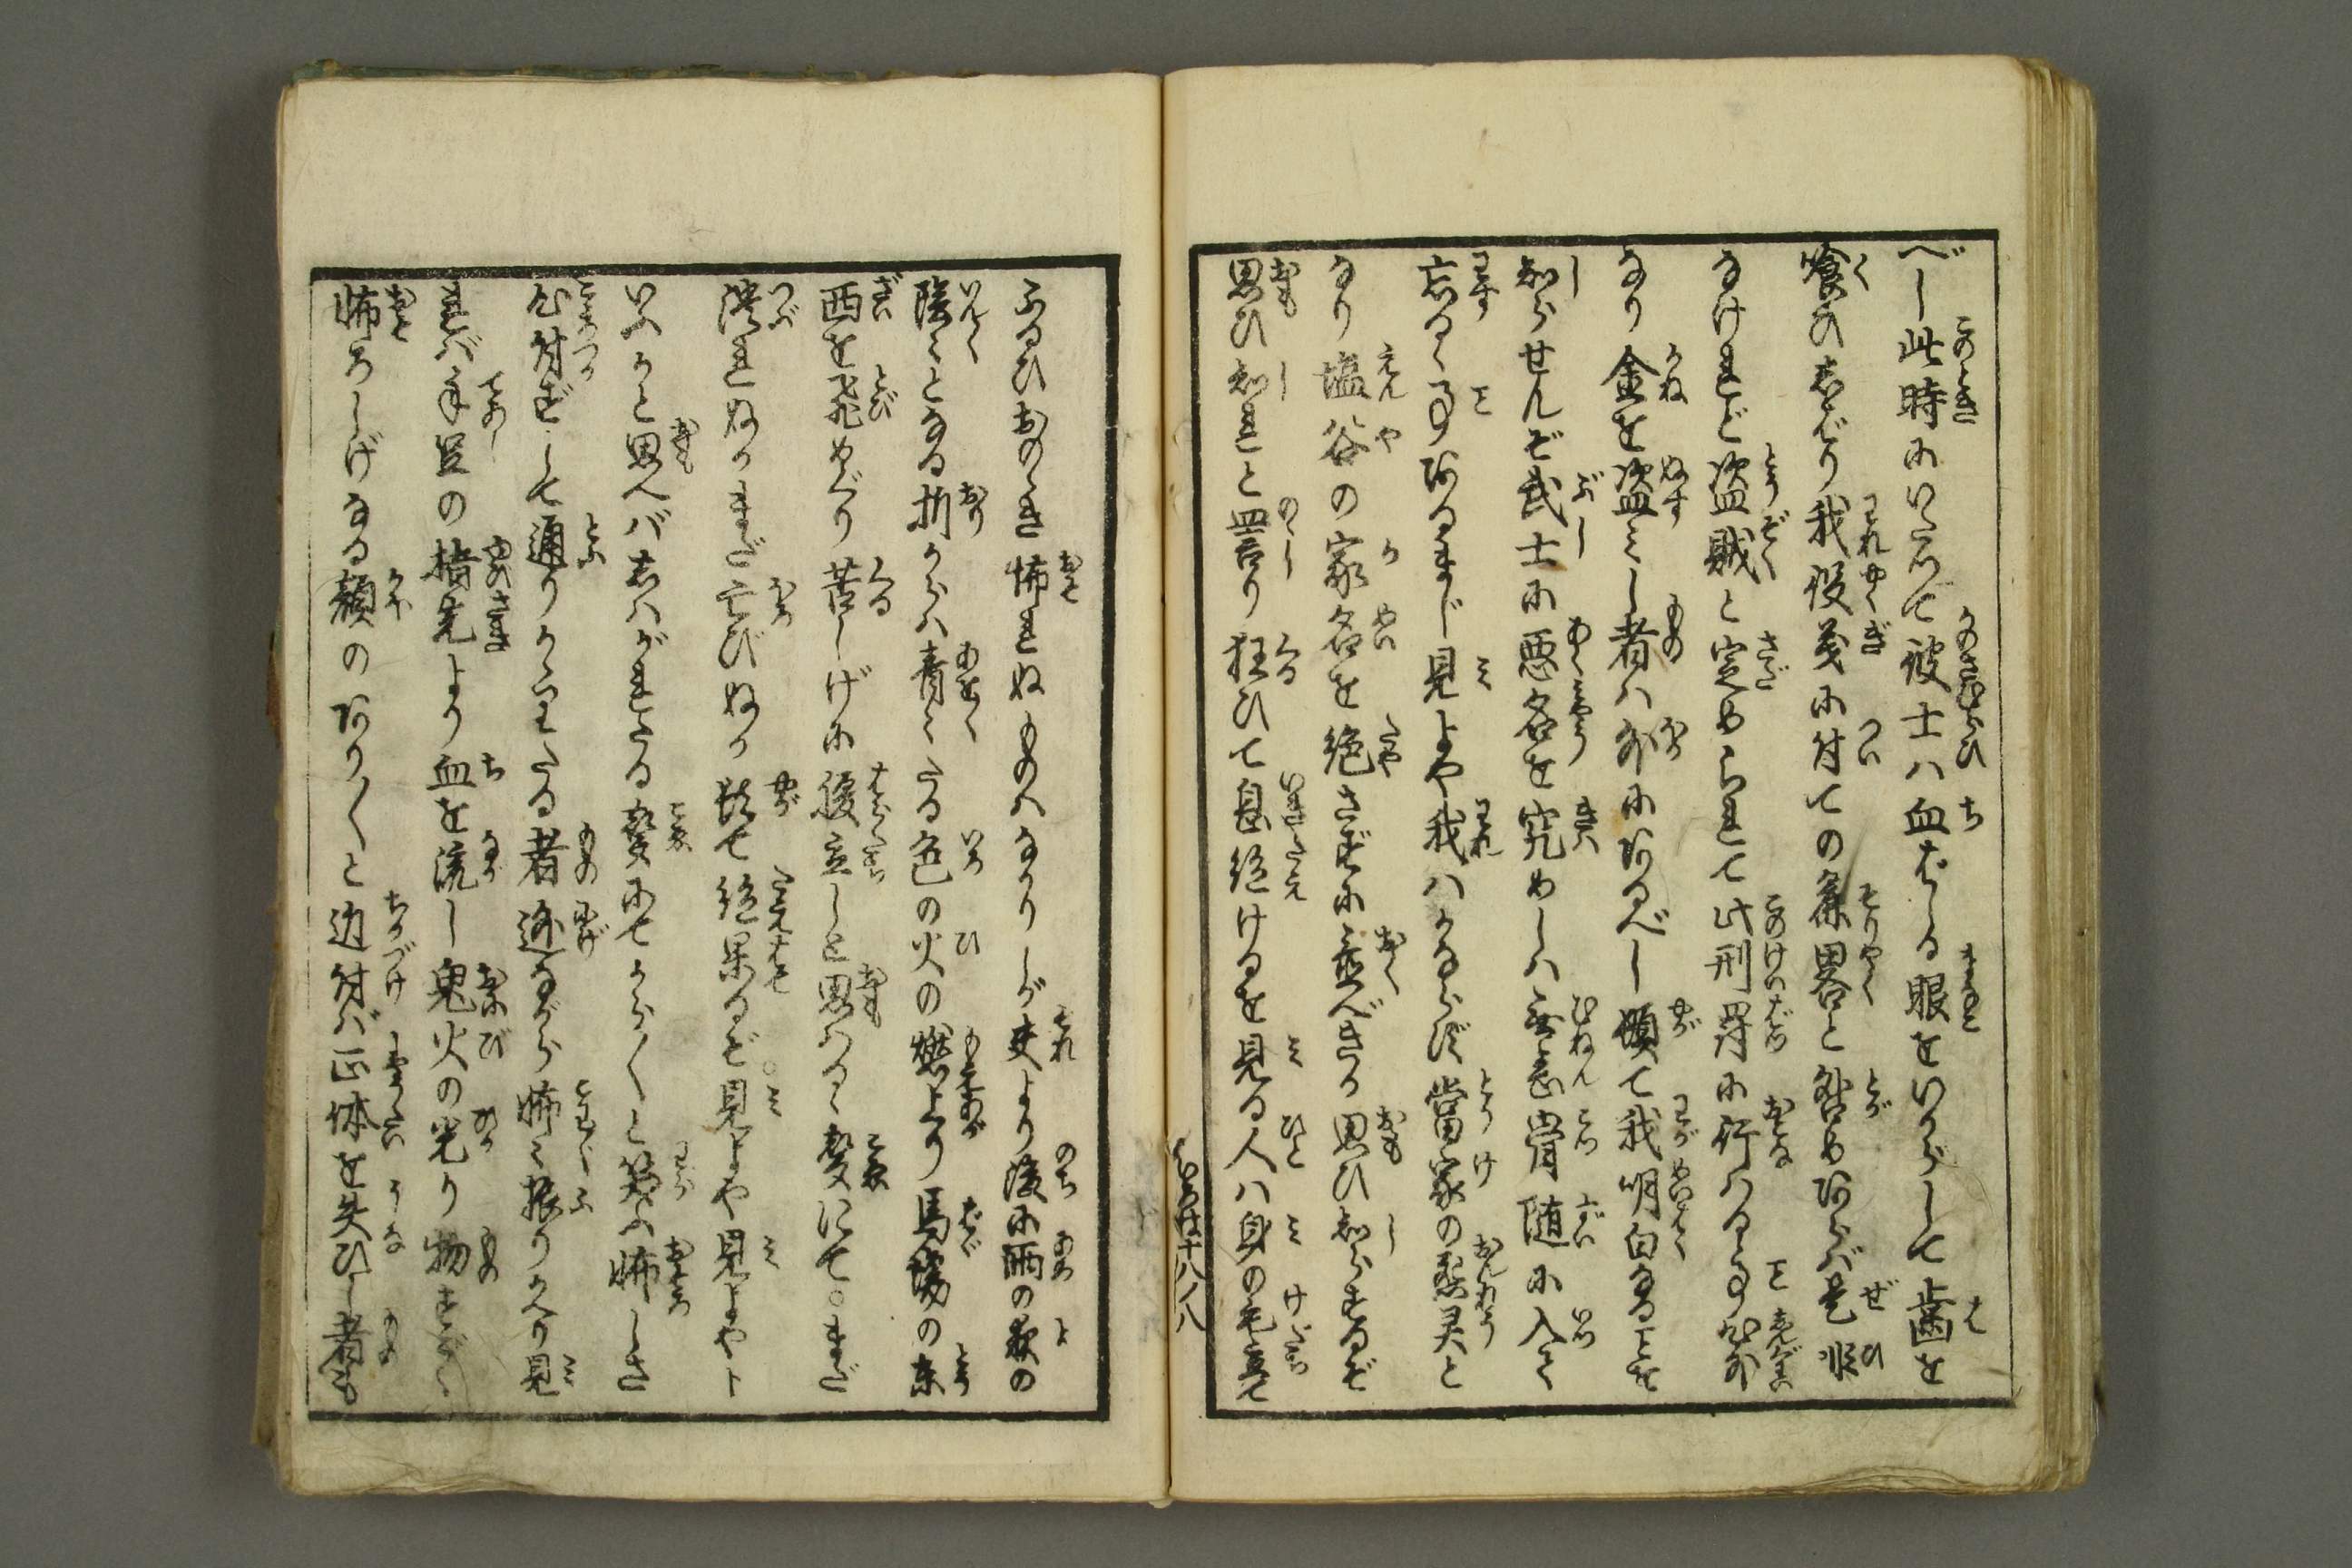 べし此時にいたりて彼士ハ血ばしる眼をいからして歯を
喰ひしばり我役義に付ての麁畧と咎めあらバ是非
なけれど盗賊と定められて此刑罸に行ハるゝ事心外
なり金を盗ミし者ハ外にあるべし頓て我明白なることを
知らせんぞ武士に悪名を究めしハ無念骨随に入て
忘るゝ事あるまじ見よや我ハかならず當家の怨灵と
なり塩谷の家名を絶さずに置べきか思ひ知らするぞ
思ひ知れと罵り狂ひて息絶けるを見る人ハ身の毛立て
いろは十八ノ八
ふるひおのゝき怖れぬものハなかりしが夫より後に雨の夜の
陰〻となる折からハ青〻たる色の火の燃上り馬場の東
西を飛めぐり苦しげに腹立しと思ハるゝ聲にて○まだ
潰れぬかまだ亡びぬか頓て絶果るぞ○見よや見よやト
いふかと思へバしハがれたる聲にてから〱と笑ふ怖しさ
心付ずして通りかゝりたる者逃ながら怖〻振りかへり見
れバ手足の指先より血を流し鬼火の光り物すごく
怖ろしげなる顔のあり〱と近付バ正体を失ひし者も